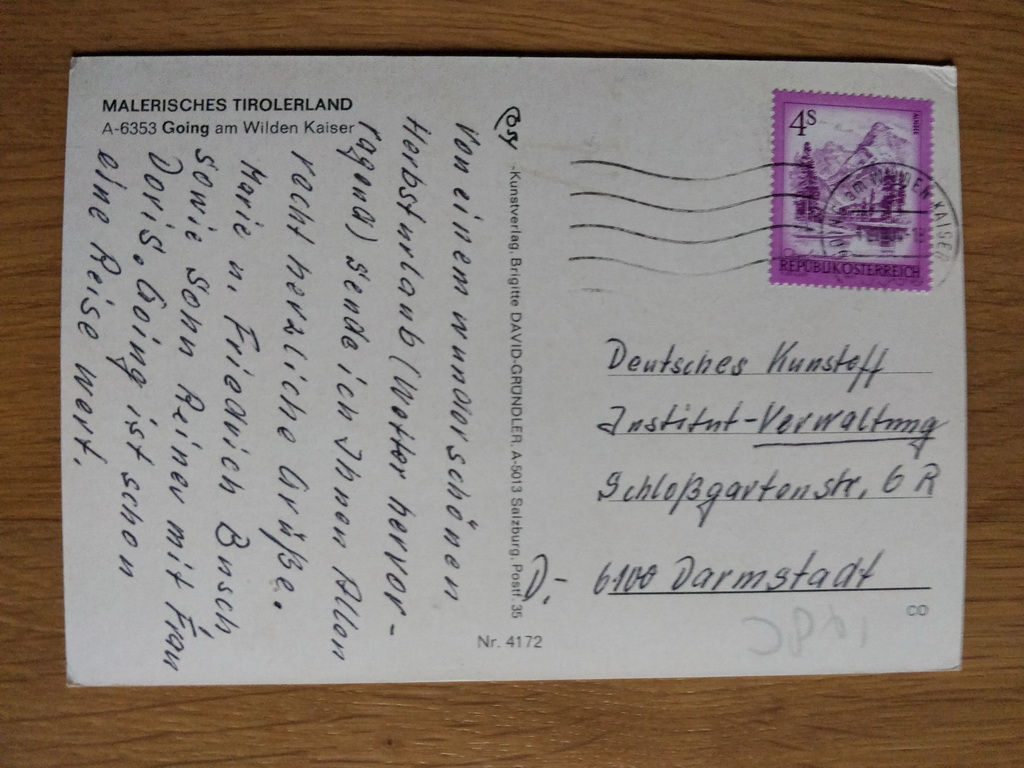 MALERISCHES TIROLERLAND
A-6353 Going am Wilden Kaiser
Von einem wunderschönen
Herbsturlaub (Wetter hervor-
ragend) sende ich Ihnen Allen
recht herzliche Grüße.
Marie u. Friedrich Busch,
sowie Sohn Reiner mit Frau
Doris. Going ist schon
eine Reise wert.
Kunstverlag, Brigitte DAVID-GRÜNDLER, A-5013 Salzburg, Postf. 35
Nr. 4172
4S
ALMSEE
REPUBLIK ÖSTERREICH
GOING am WILDEN KAISER
Deutsches Kunstoff
Institut-Verwaltung
Schloßgartenstr, 6 R
D,- 6100 Darmstadt
CD